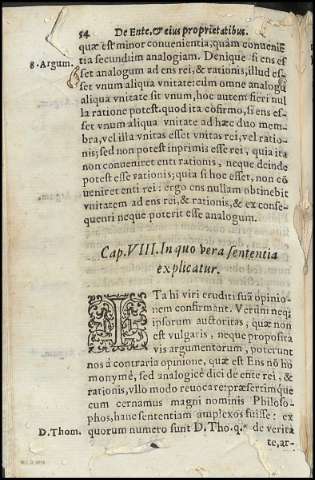 54 De Ente, & eius proprietatibus.
quæ est minor conuenientia, quàm conueniẽ
tia secundùm analogiam. Denique si ens es
8. Argum. set analogum ad ens rei, & rationis, illud es-
set vnum aliqua vnitate: cùm omne analogũ
aliqua vnitate sit vnum, hoc autem fieri nul
la ratione potest. quod ita cõfirmo, si ens es-
set vnum aliqua vnitate ad hæc duo mem-
bra, vel illa vnitas esset vnitas rei, vel ratio-
nis; sed non potest in primis esse rei, quia ita
non conueniret enti rationis, neque deinde
potest esse rationis; quia si hoc esset, non cõ
ueniret enti rei: ergo ens nullam obtinebit
vnitatem ad ens rei, & rationis, & ex conse-
quenti neque poterit esse analogum.
Cap. VIII. In quo vera sententia
explicatur.
ITa hi viri eruditi suã opinio
nem confirmant. Verùm neq;
ipsorum auctoritas, quæ non
est vulgaris, neque proposita
vis argumentorum, poterunt
nos à contraria opinione, quæ est Ens nõ ho
monymè, sed analogicè dici de ente rei, &
rationis, vllo modo reuocare: præsertimque
cùm cernamus magni nominis Philoso-
phos, hanc sententiam amplexos fuisse: ex
D. Thom. quorum numero sunt D. Tho. q. de verita
te, ar-